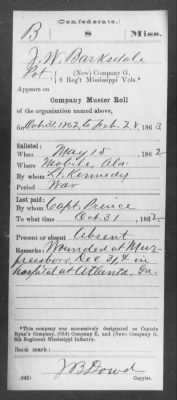 (Confederate.)
B 8 Miss.
J. W. Barksdale
Pvt., (New) Company G,
8 Reg't Mississippi Vols.*
Appears on
Company Muster Roll
of the organization named above,
for Oct. 31, 1862, to Feb. 28, 1863
Enlisted:
When May 15, 1862
Where Mobile, Ala.
By whom Lt. Kennedy
Period War
Last paid:
By whom Capt. Prince
To what time Oct. 31, 1862
Present or absent Absent
Remarks: Wounded at Mur-
freesboro, Dec 31, & in
hospital at Atlanta, Ga.
*This company was successively designated as Captain
Ryan's Company, (Old) Company E, and (New) Company G,
8th Regiment Mississippi Infantry.
Book mark:
J B Dowd
(642) Copyist.